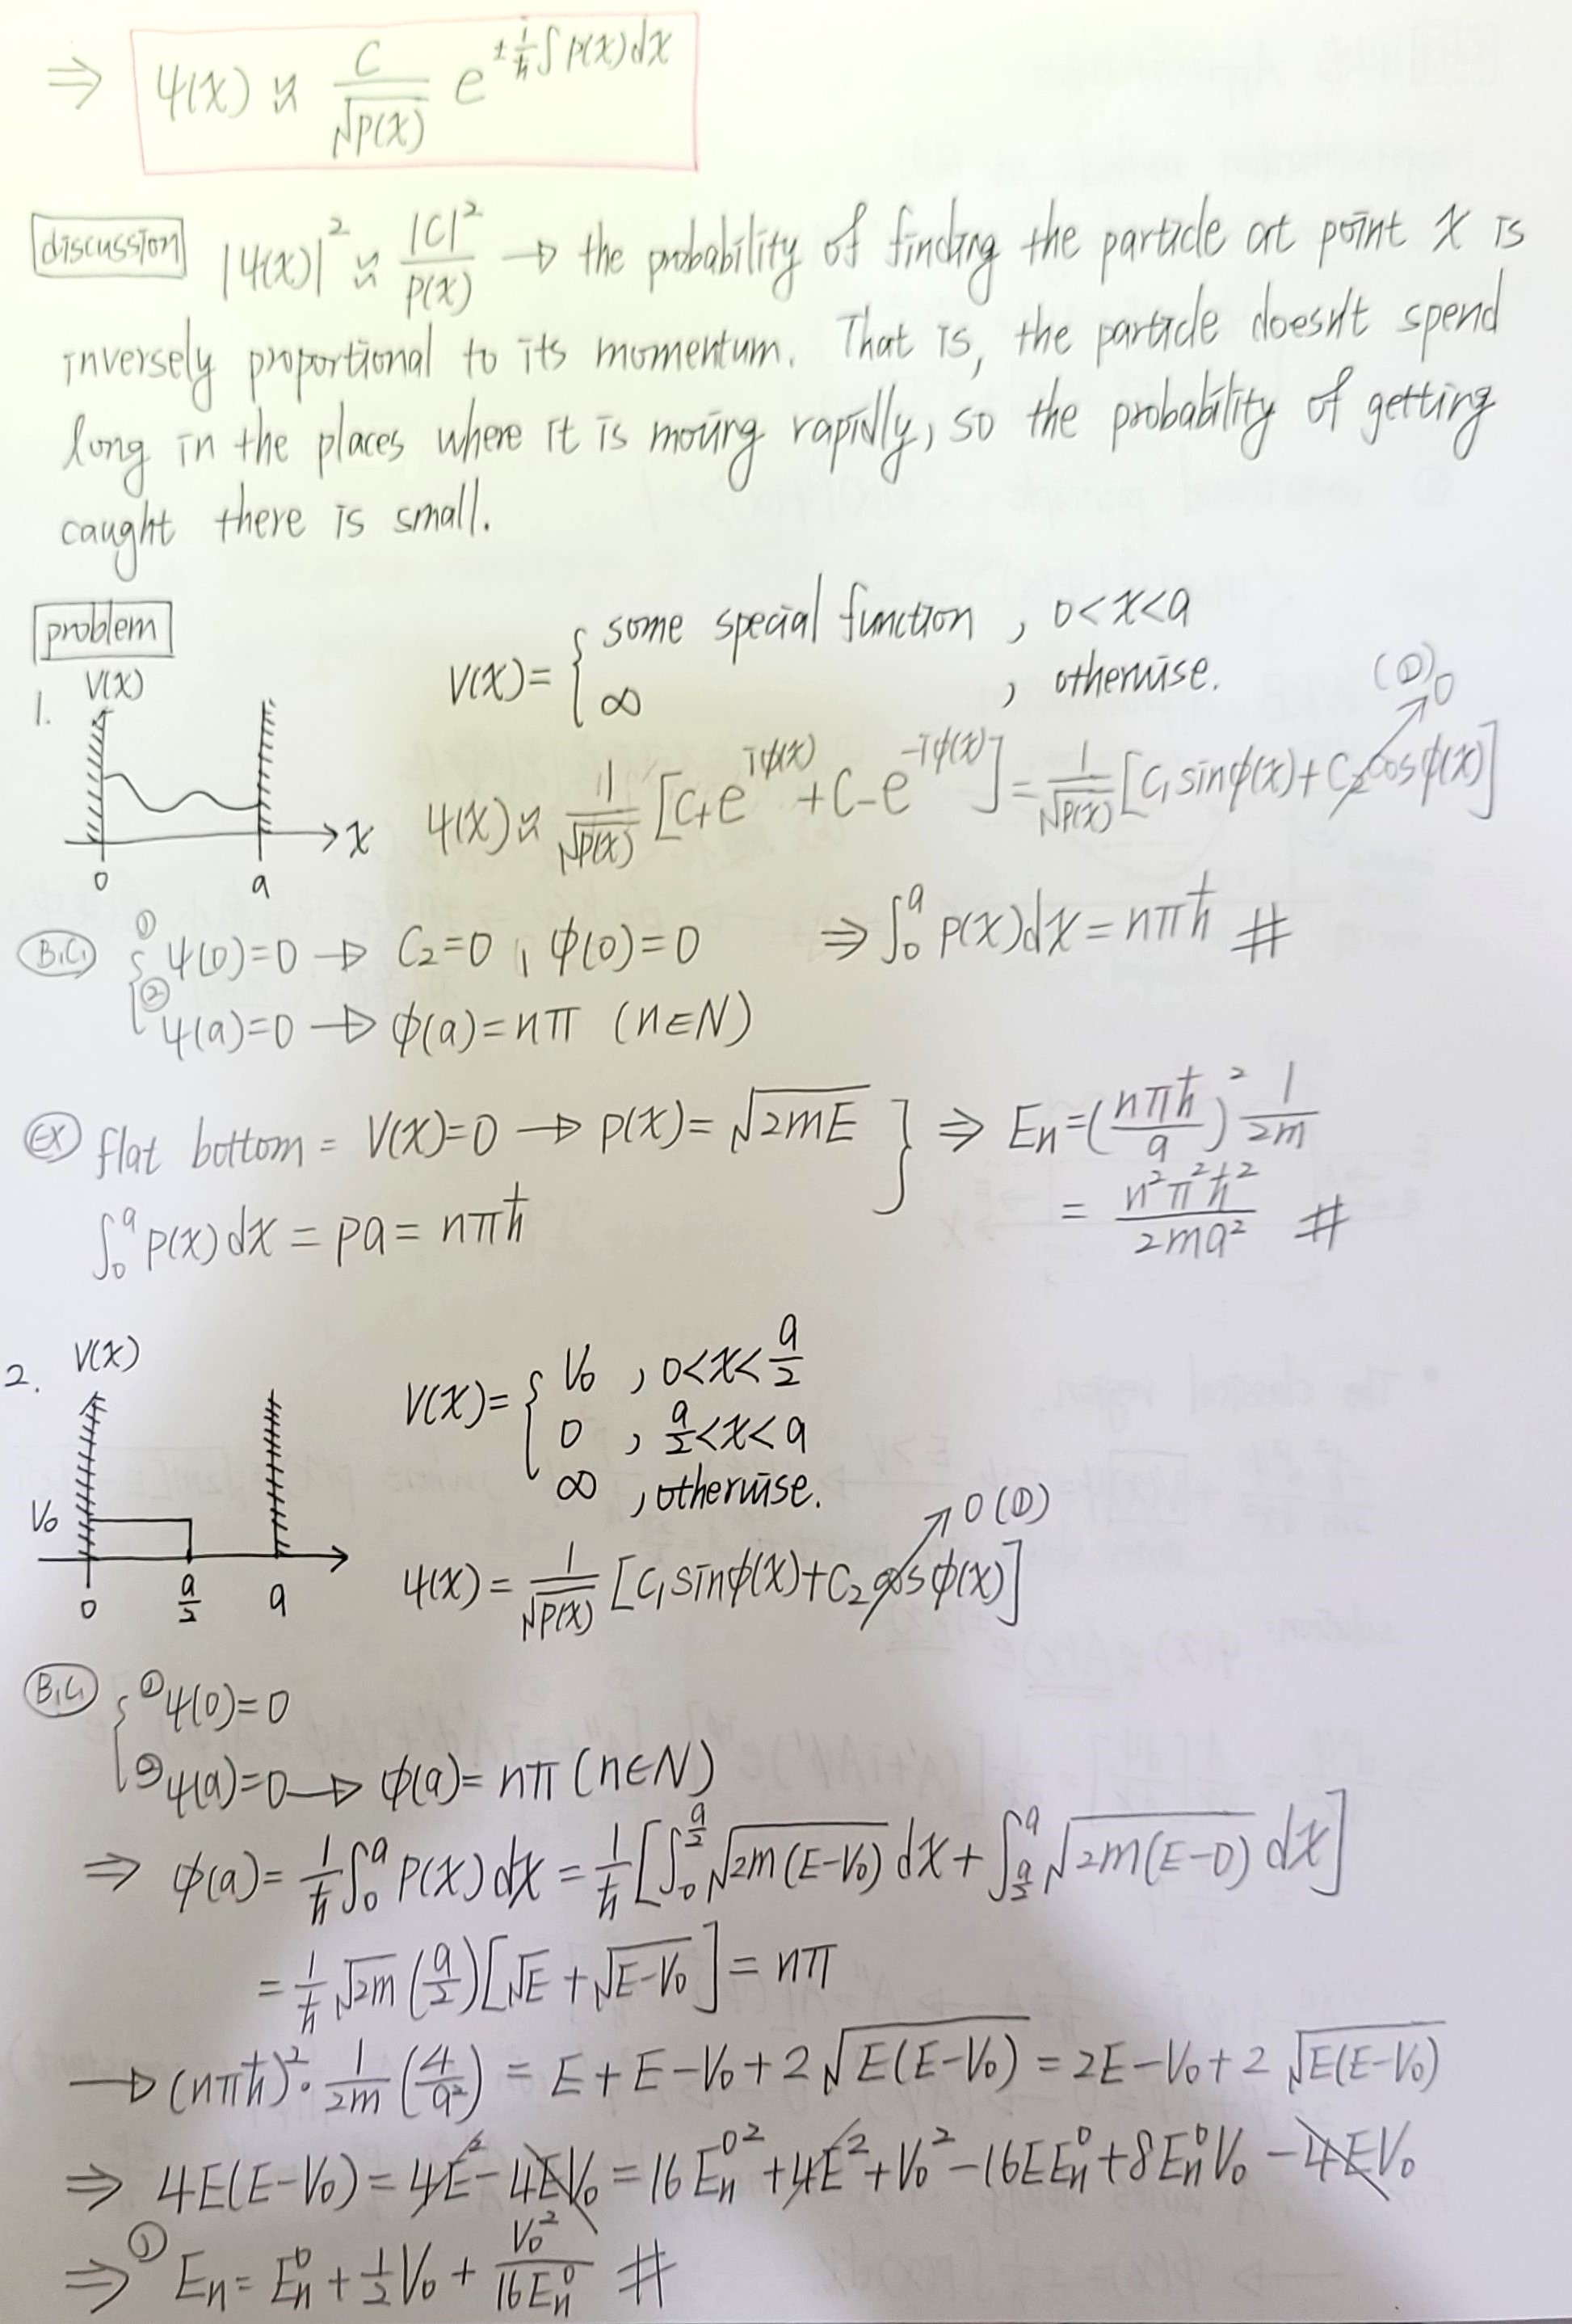 ⇒ ψ(x) ≈ C/√p(x) e^{±i/ħ ∫p(x)dx}
discussion |ψ(x)|² ≈ |C|²/p(x) → the probability of finding the particle at point x is
inversely proportional to its momentum. That is, the particle doesn't spend
long in the places where it is moving rapidly, so the probability of getting
caught there is small.
problem
1. V(x) 0 a x
V(x)= { some special function , 0<x<a
∞ , otherwise.
ψ(x) ≈ 1/√p(x) [C₊e^{iφ(x)} + C₋e^{-iφ(x)}] = 1/√p(x) [C₁sinφ(x) + C₂cosφ(x)] (①) 0
B.C. { ① ψ(0)=0 → C₂=0 , φ(0)=0 ⇒ ∫₀ᵃ p(x)dx = nπħ #
② ψ(a)=0 → φ(a)=nπ (n∈N)
EX flat bottom = V(x)=0 → p(x)=√2mE } ⇒ Eₙ=(nπħ/a)² 1/2m
∫₀ᵃ p(x)dx = pa = nπħ = n²π²ħ²/2ma² #
2. V(x) V₀ 0 a/2 a
V(x)= { V₀ , 0<x<a/2
0 , a/2<x<a
∞ , otherwise.
ψ(x) = 1/√p(x) [C₁sinφ(x) + C₂cosφ(x)] 0 (①)
B.C. { ① ψ(0)=0
② ψ(a)=0 → φ(a)=nπ (n∈N)
⇒ φ(a) = 1/ħ ∫₀ᵃ p(x)dx = 1/ħ [∫₀^{a/2} √2m(E-V₀) dx + ∫_{a/2}^a √2m(E-0) dx]
= 1/ħ √2m (a/2)[√E + √E-V₀] = nπ
→ (nπħ)²·1/2m (4/a²) = E+E-V₀+2√E(E-V₀) = 2E-V₀+2√E(E-V₀)
⇒ 4E(E-V₀) = 4E²-4EV₀ = 16Eₙ⁰²+4E²+V₀²-16EEₙ⁰+8Eₙ⁰V₀-4EV₀
⇒ ① Eₙ = Eₙ⁰ + 1/2 V₀ + V₀²/16Eₙ⁰ #